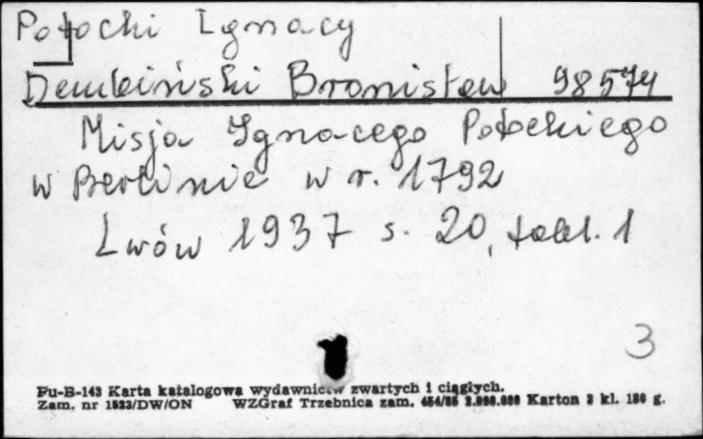 Potocki Ignacy
Dembiński Bronisław 98574
Misja Ignacego Potockiego
w Berlinie w r. 1792
Lwów 1937 s. 20, tabl. 1
3
Pu-B-143 Karta katalogowa wydawnictw zwartych i ciągłych.
Zam. nr 1523/DW/ON WZGraf Trzebnica zam. Karton 3 kl. 180 g.